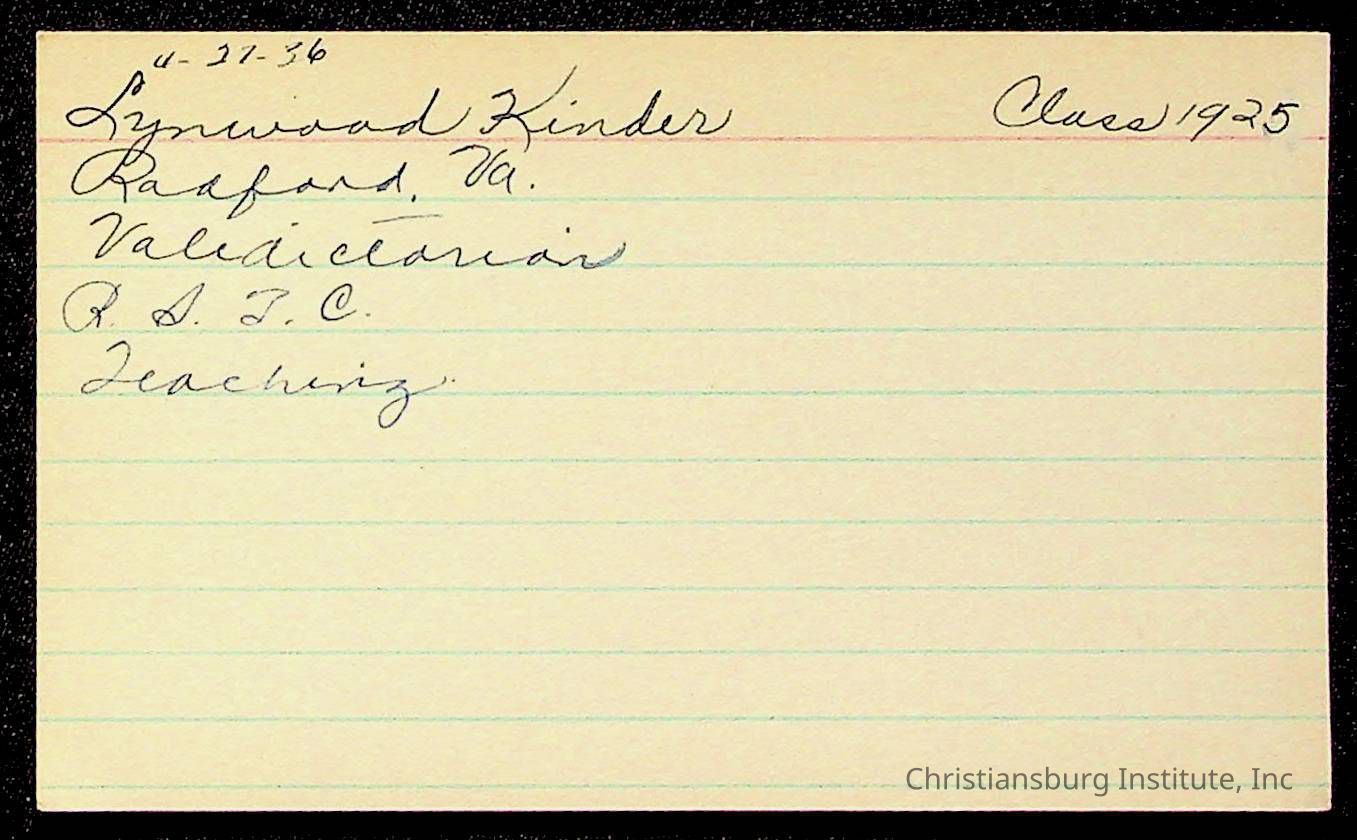 4-27-36
Lynwood Kinder Class 1925
Radford, Va.
Valedictorian
R. S. T. C.
Teaching
Christiansburg Institute, Inc